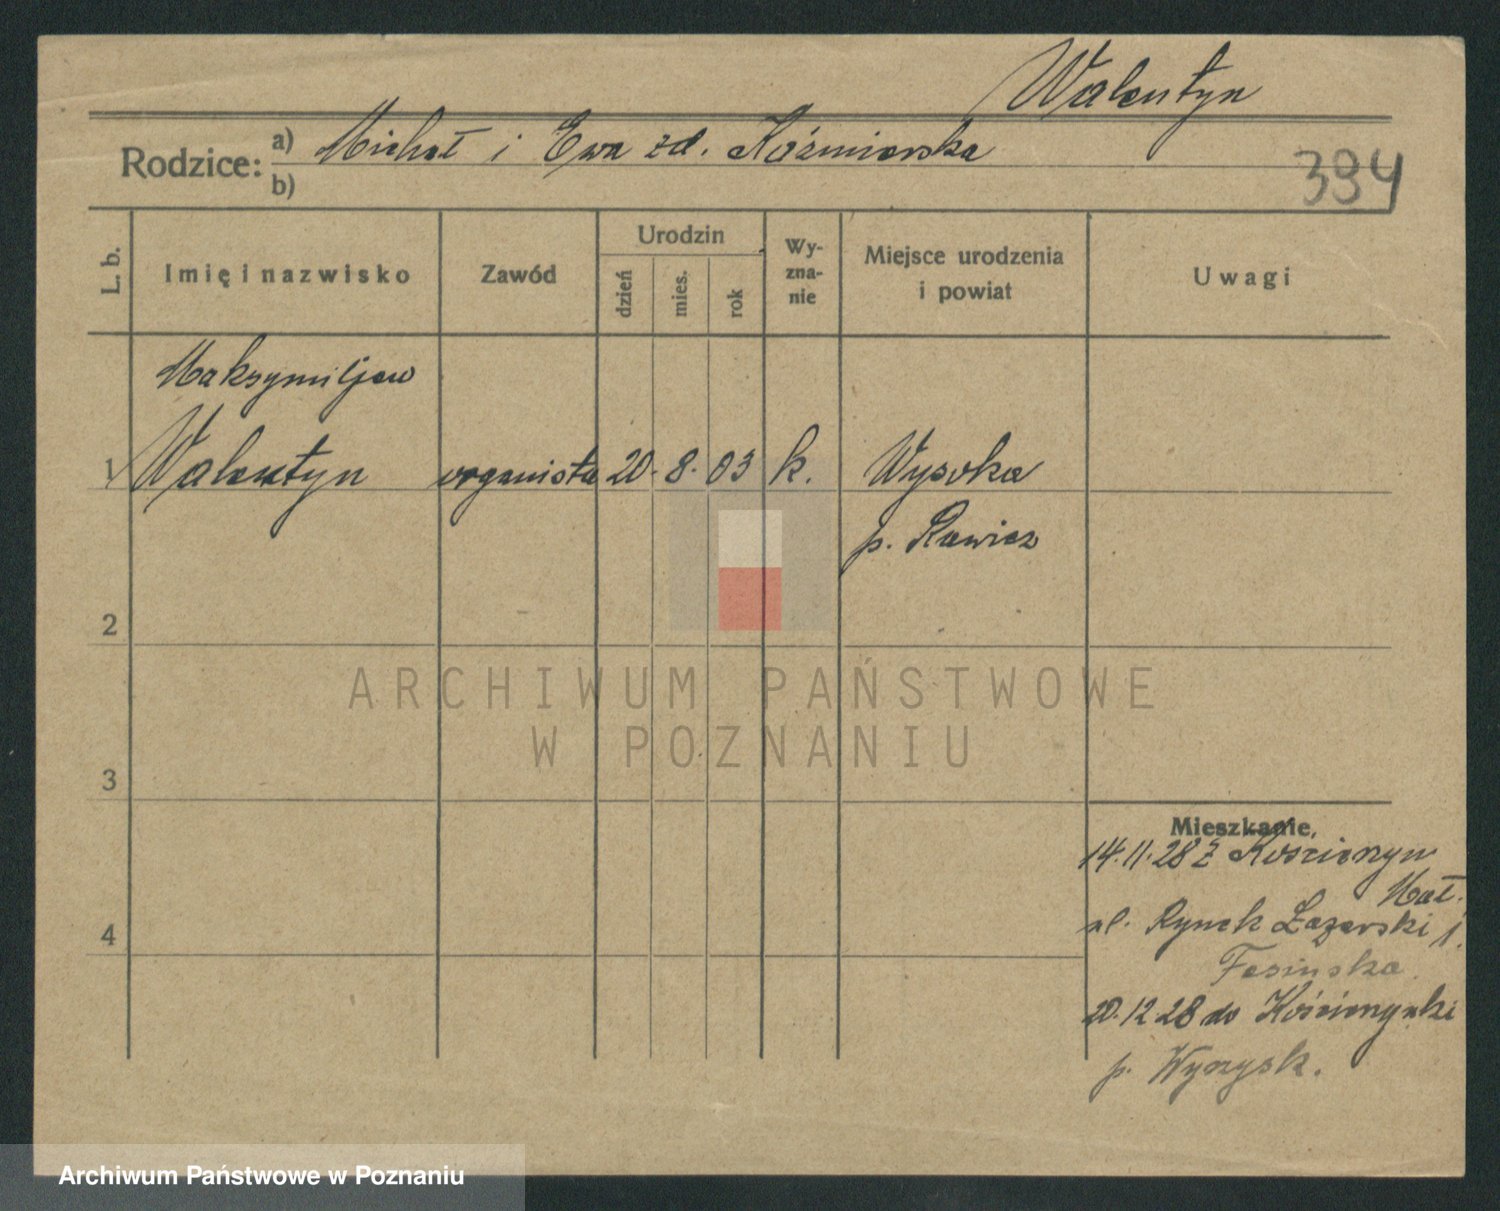 Walentyn
Rodzice: a) Michał i Ewa zd. Koźmierska
b)
394
L. b.
Imię i nazwisko
Zawód
Urodzin
dzień
mies.
rok
Wy-
zna-
nie
Miejsce urodzenia
i powiat
Uwagi
Maksymiljan
1 Walentyn organista 20. 8. 03 k. Wysoka
p. Rawicz
2
ARCHIWUM PAŃSTWOWE
W POZNANIU
3
Mieszkanie
14.11.28 z
4
ul. Rynek Łazarski 1.
20.12 28 do
p. Wyrzysk.
Archiwum Państwowe w Poznaniu